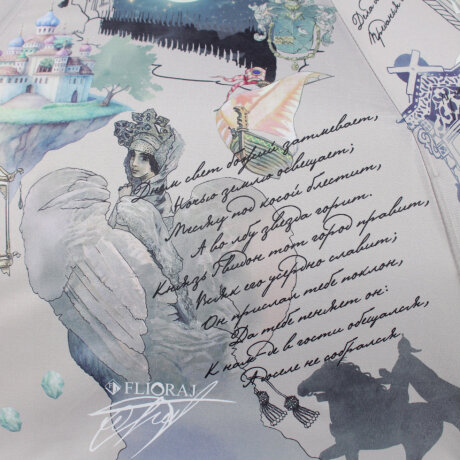 Днем свет божий затмевает,
Ночью землю освещает;
Месяц под косой блестит,
А во лбу звезда горит.
Князь Гвидон тот город правит,
Всяк его усердно славит;
Он прислал тебе поклон,
Да тебе пеняет он:
К нам-де в гости обещался,
А доселе не собрался
FLIORAJ